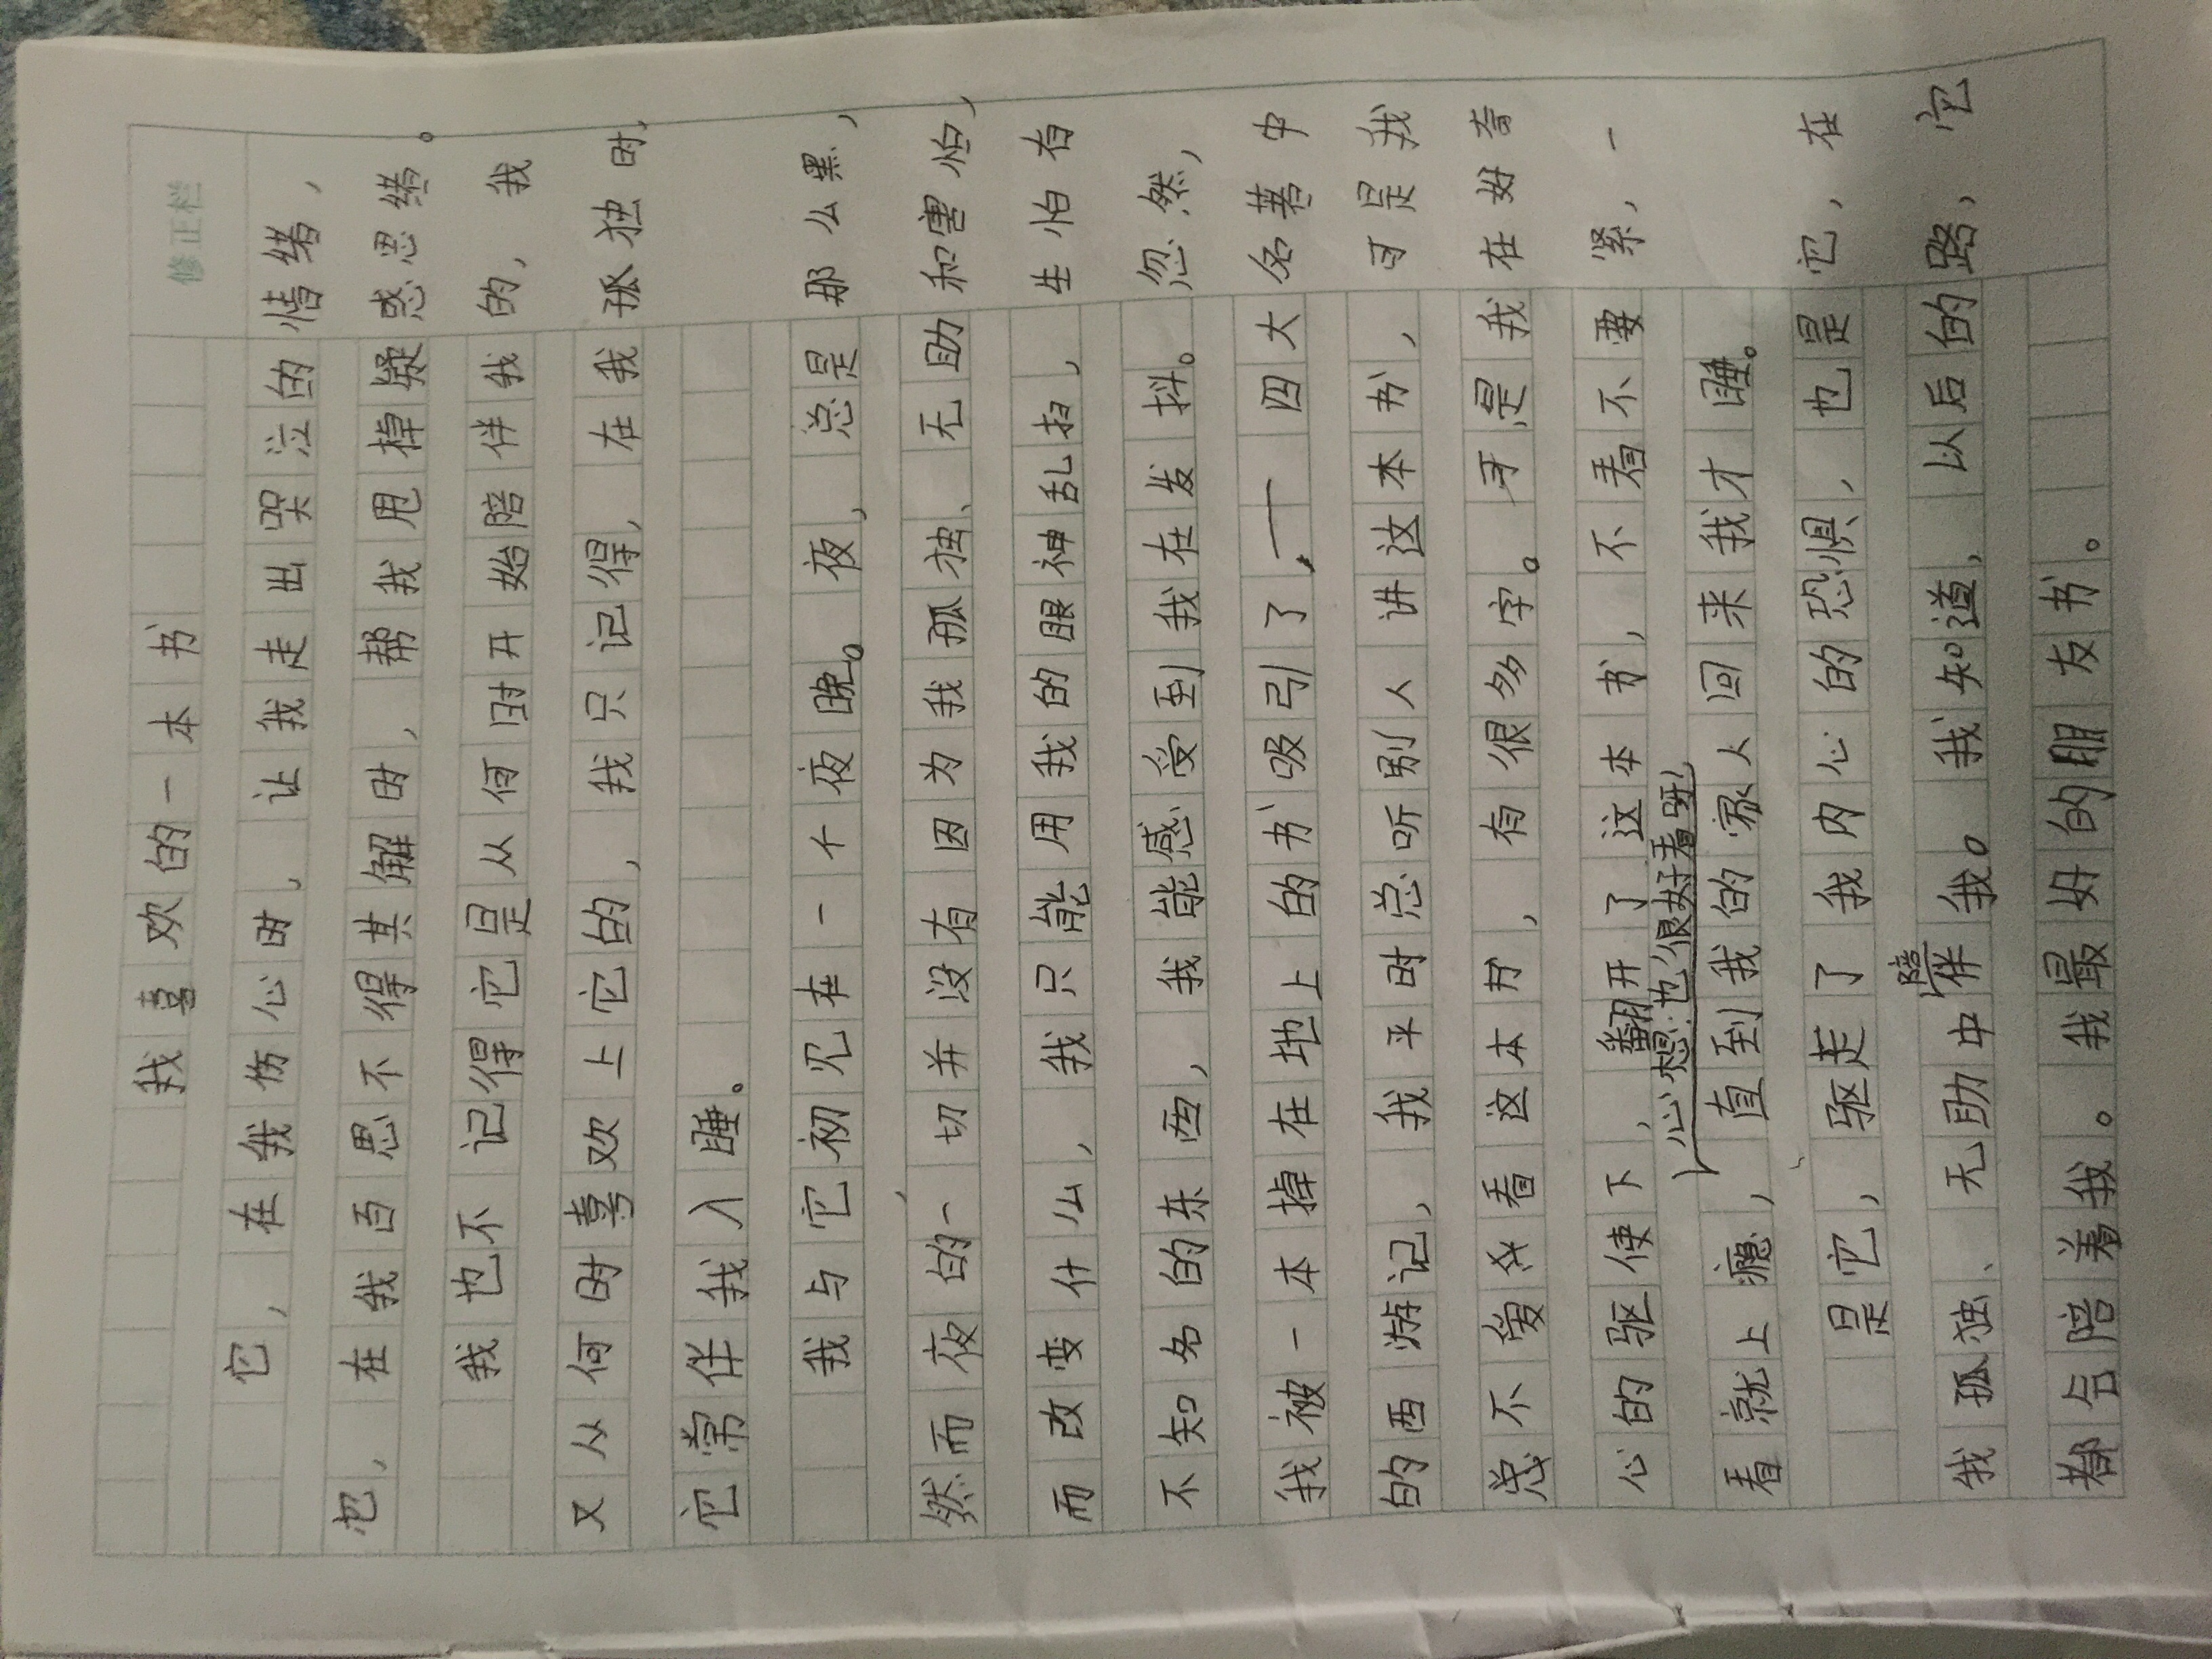 修正栏
我喜欢的一本书
它，在我伤心时，让我走出哭泣的情绪，
它，在我百思不得其解时，帮我甩掉疑惑思绪。
我也不记得它是从何时开始陪伴我的，我
又从何时喜欢上它的，我只记得，在我孤独时，
它常伴我入睡。
我与它初见在一个夜晚。夜，总是那么黑，
然而夜的一切并没有因为我孤独、无助和害怕，
而改变什么，我只能用我的眼神乱扫，生怕有
不知名的东西，我能感受到我在发抖。忽然，
我被一本掉在地上的书吸引了，——四大名著中
的西游记，我平时总听别人讲这本书，可是我
总不爱看这本书，有很多字。于是我在好奇
心的驱使下，翻开了这本书，不看不要紧，一
心想：也很好看呀！
看就上瘾，直到我的家人回来我才睡。
是它，驱走了我内心的恐惧，也是它，在
我孤独、无助中陪伴我。我知道，以后的路，它
都会陪着我。我最好的朋友书。